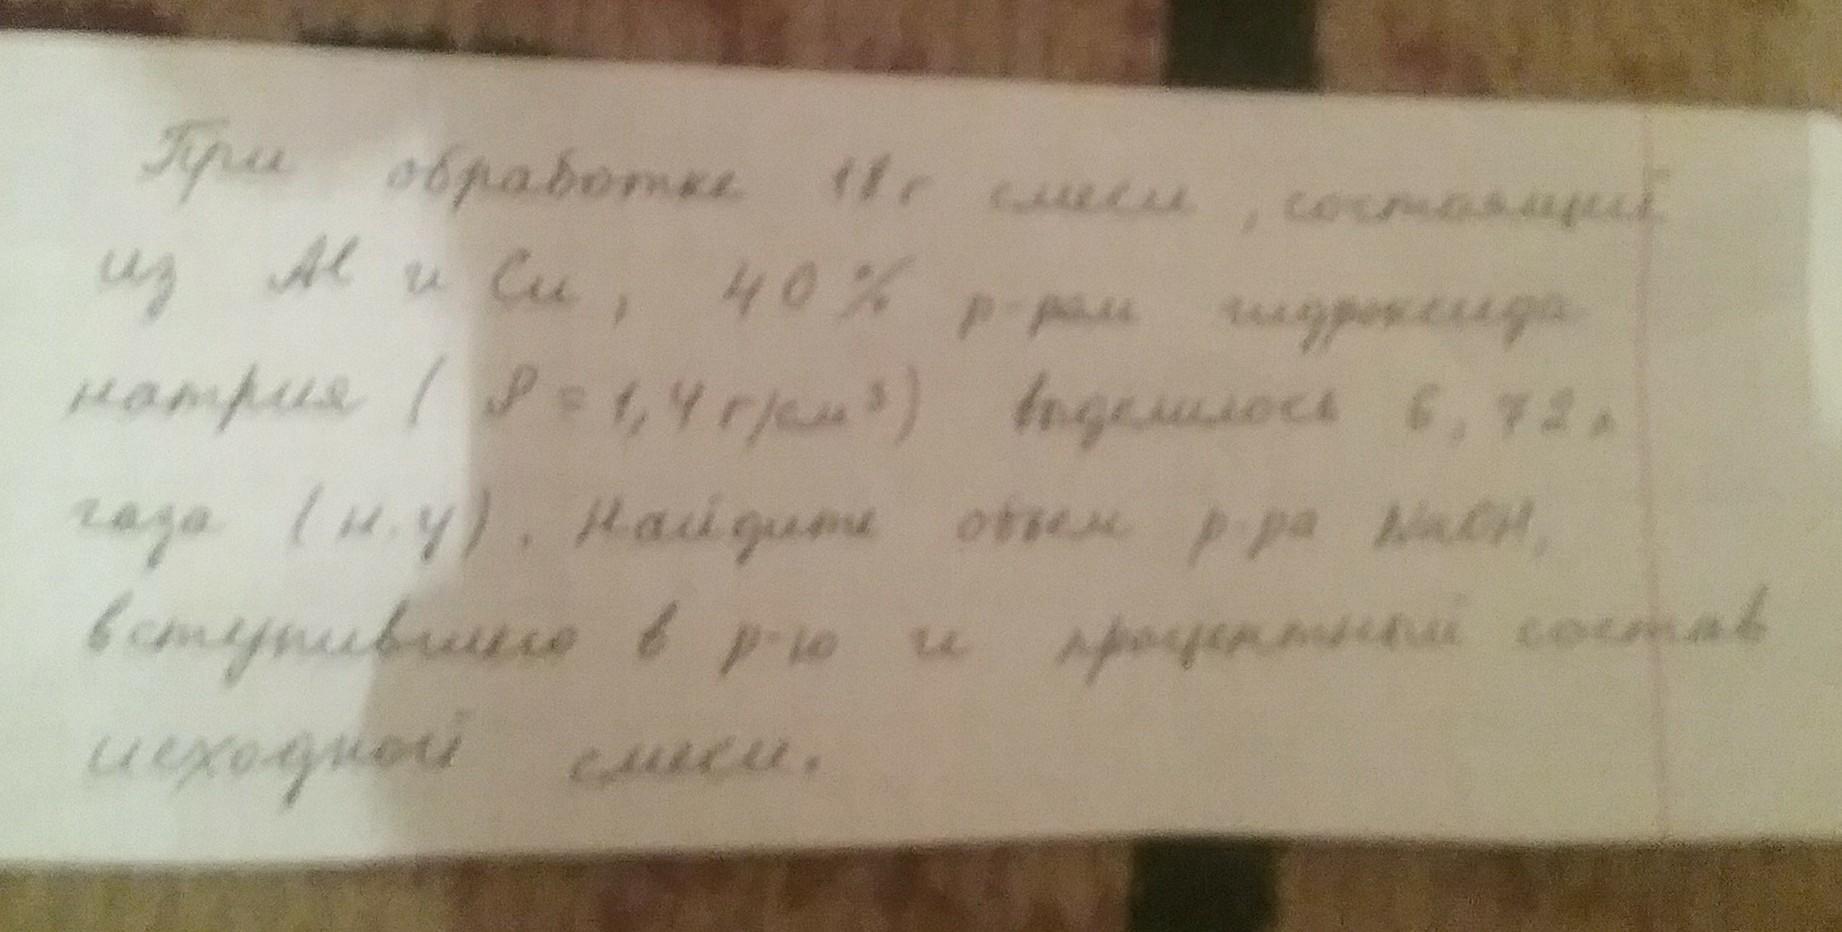 При обработке 18 г смеси, состоящий
из Al и Cu, 40% р-ром гидроксида
натрия (ρ = 1,4 г/см³) выделилось 6,72 л
газа (н.у). Найдите объем р-ра NaOH,
вступившего в р-ю и процентный состав
исходной смеси.